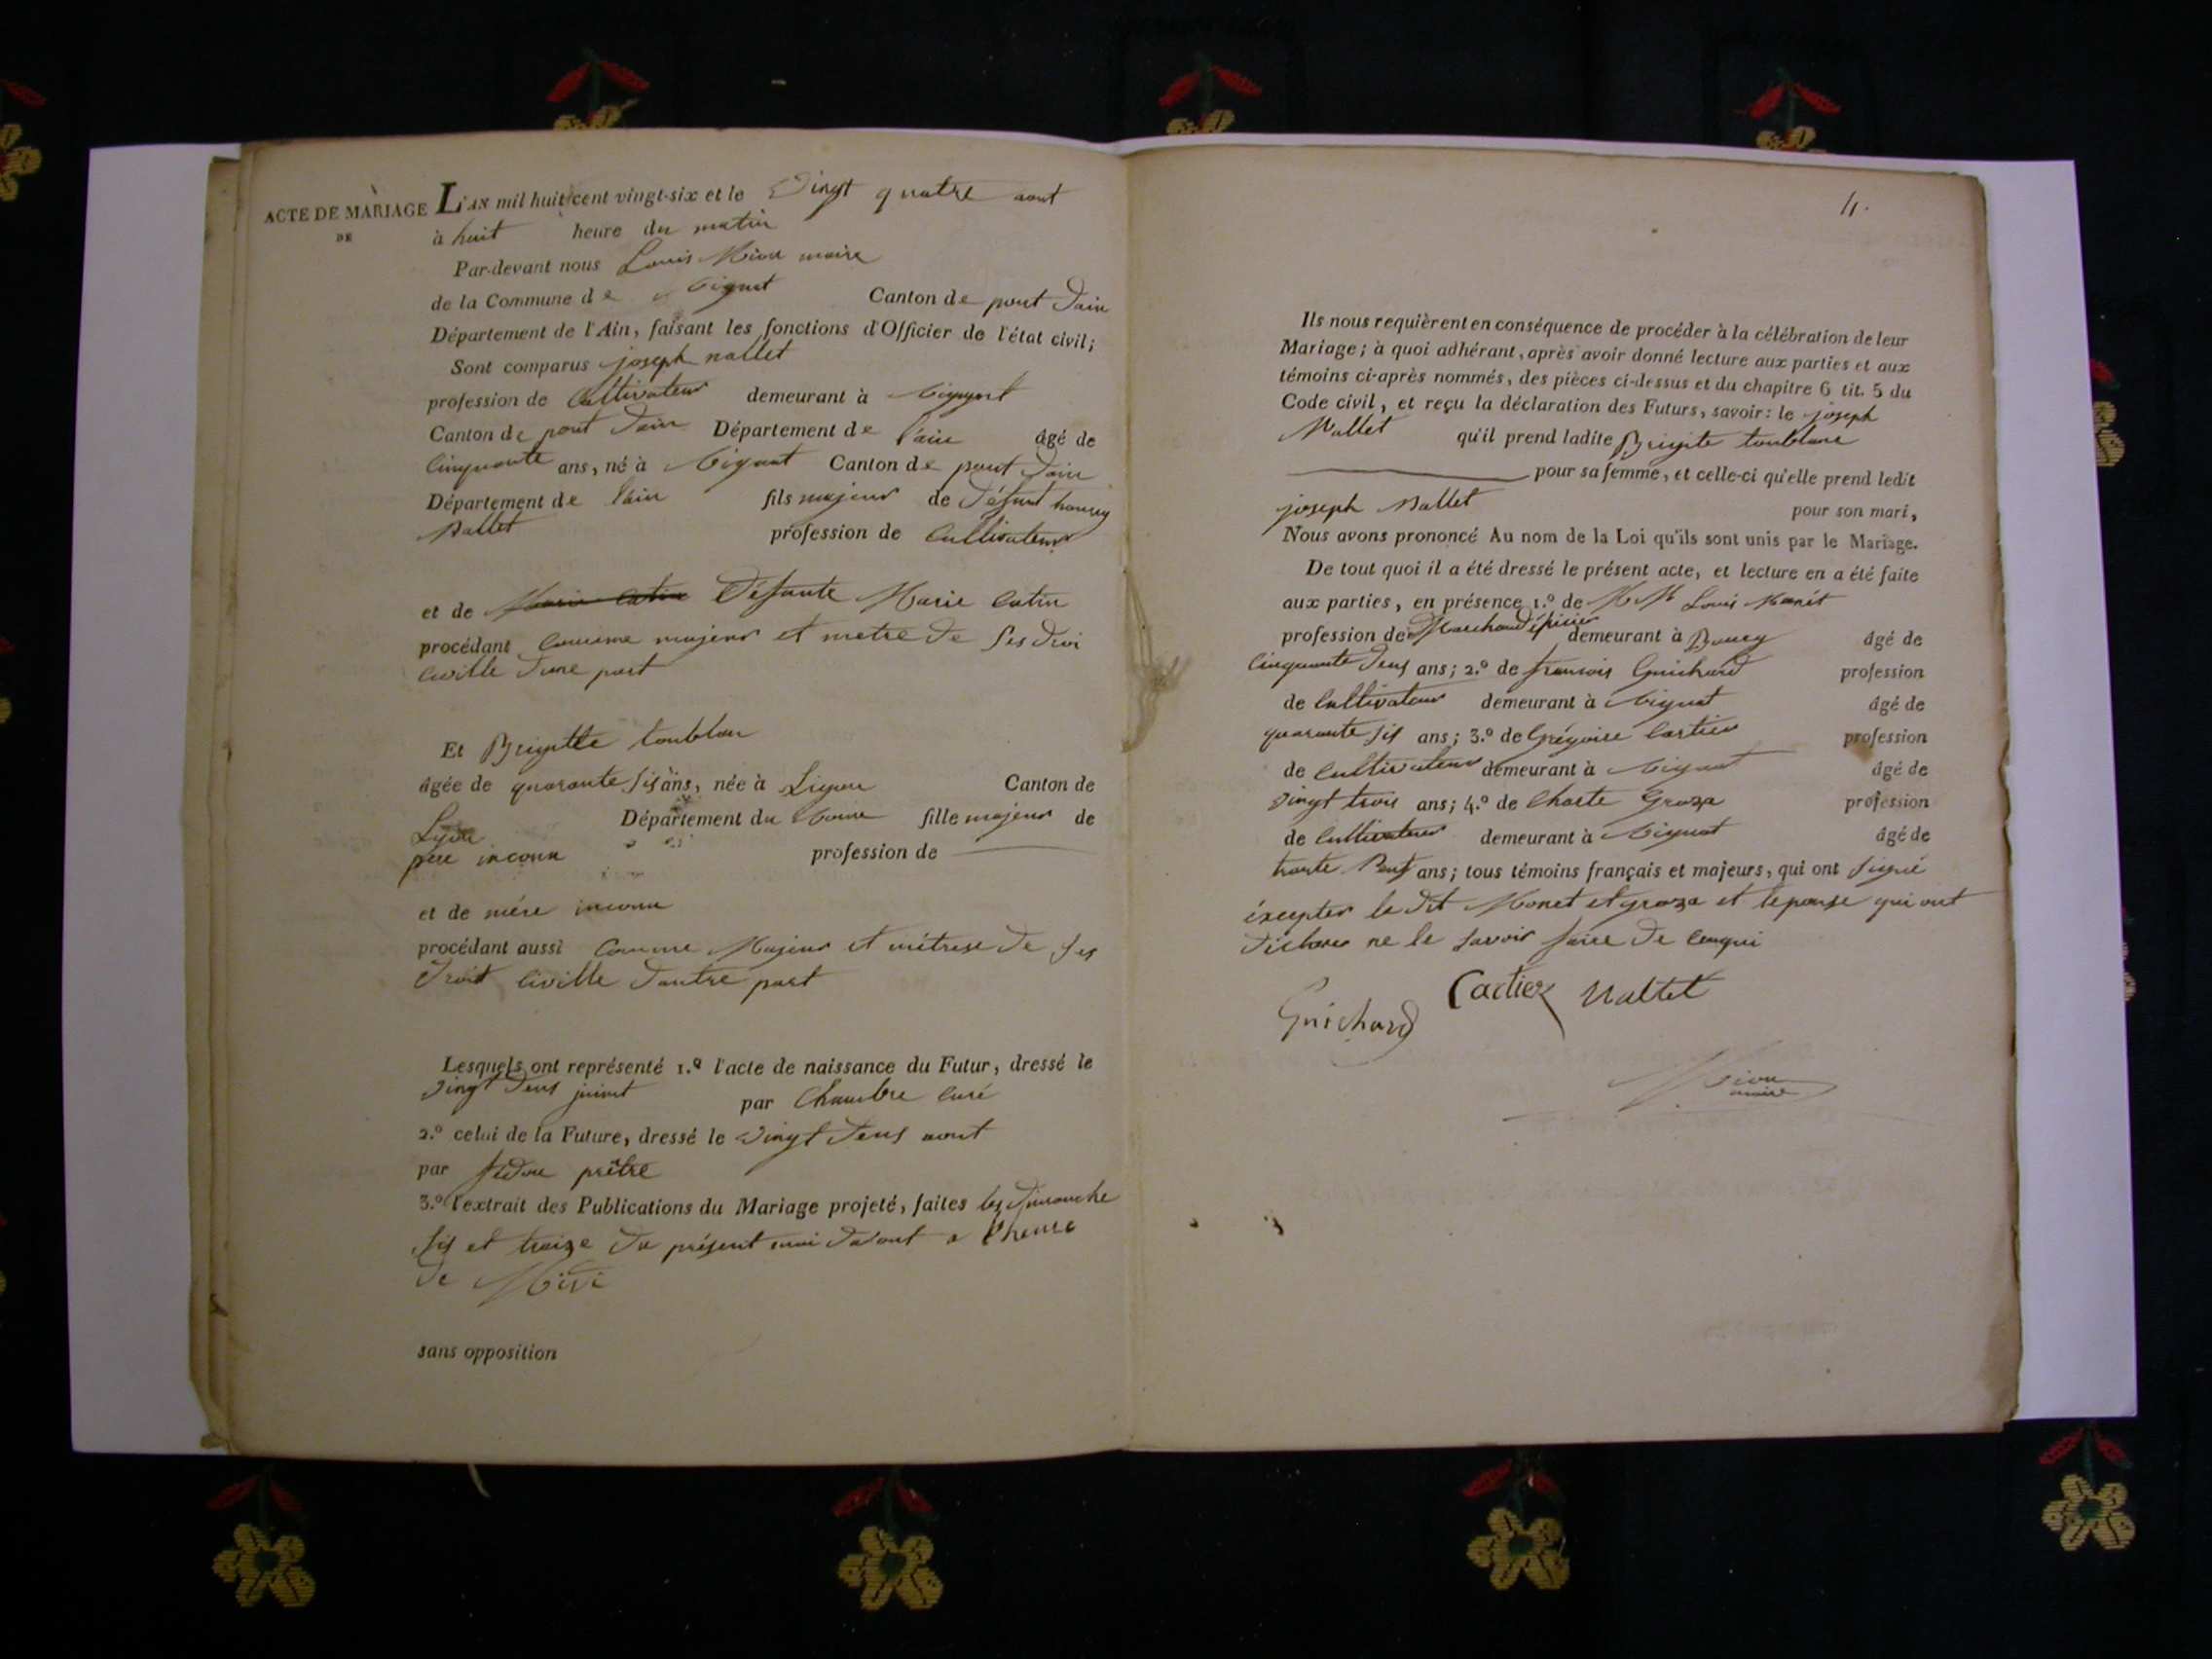 ACTE DE MARIAGE
DE
L'AN mil huit cent vingt-six et le Vingt quatre aout
à huit heure du matin
Par-devant nous Louis maire
de la Commune de Canton de pont dain
Département de l'Ain, faisant les fonctions d'Officier de l'état civil;
Sont comparus joseph nallet
profession de Cultivateur demeurant à
Canton de pont dain Département de l'ain âgé de
Cinquante ans, né à Canton de pont dain
Département de l'ain fils majeur de défunt
Nallet profession de Cultivateur
et de défunte Marie
procédant comme majeur et metre de ses droi
civille dune part
Et Brigitte toublan
âgée de quarante sis ans, née à Canton de
Département du fille majeur de
père inconu profession de
et de mére inconu
procédant aussi comme Majeur et métrese de ses
droit civille dautre part
Lesquels ont représenté 1.º l'acte de naissance du Futur, dressé le
vingt deus par Chambre curé
2.º celui de la Future, dressé le vingt deus aout
par prêtre
3.º l'extrait des Publications du Mariage projeté, faites les dimanche
sis et traize du présent moi daout a l'heure
de Midi
sans opposition
Ils nous requièrent en conséquence de procéder à la célébration de leur
Mariage; à quoi adhérant, après avoir donné lecture aux parties et aux
témoins ci-après nommés, des pièces ci-dessus et du chapitre 6 tit. 5 du
Code civil, et reçu la déclaration des Futurs, savoir: le joseph
Nallet qu'il prend ladite Brigite toublanc
pour sa femme, et celle-ci qu'elle prend ledit
joseph Nallet pour son mari,
Nous avons prononcé Au nom de la Loi qu'ils sont unis par le Mariage.
De tout quoi il a été dressé le présent acte, et lecture en a été faite
aux parties, en présence 1.º de Louis
profession de Marchand épicier demeurant à Bourg âgé de
Cinquante deus ans; 2.º de francois Guichard profession
de Cultivateur demeurant à âgé de
quarante sis ans; 3.º de Grégoire Cartier profession
de Cultivateur demeurant à âgé de
vingt trois ans; 4.º de Groza profession
de Cultivateur demeurant à âgé de
trante Neuf ans; tous témoins français et majeurs, qui ont signé
éxcepter le dit Monet et groza et lepouse qui ont
ne le savoir faire de
Guichard Cartier Nallet
maire